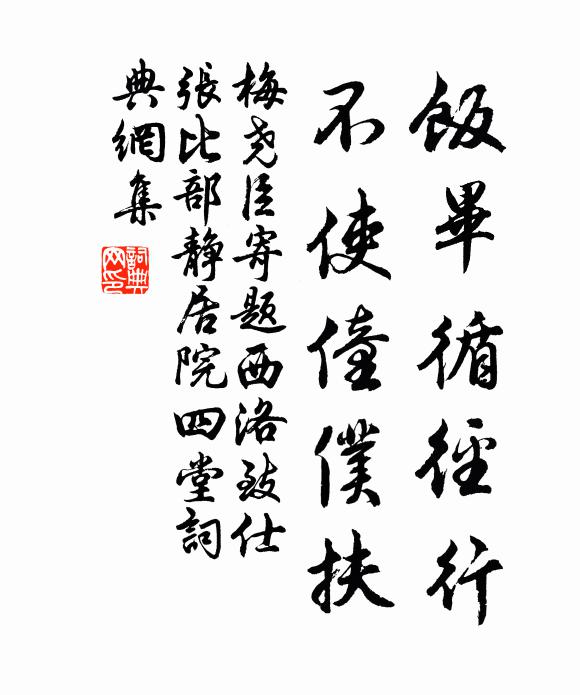 飯畢循徑行
不使僮僕扶
梅尧臣寄题西洛致仕
張比部静居院四堂詞
典網集
詞典
网印